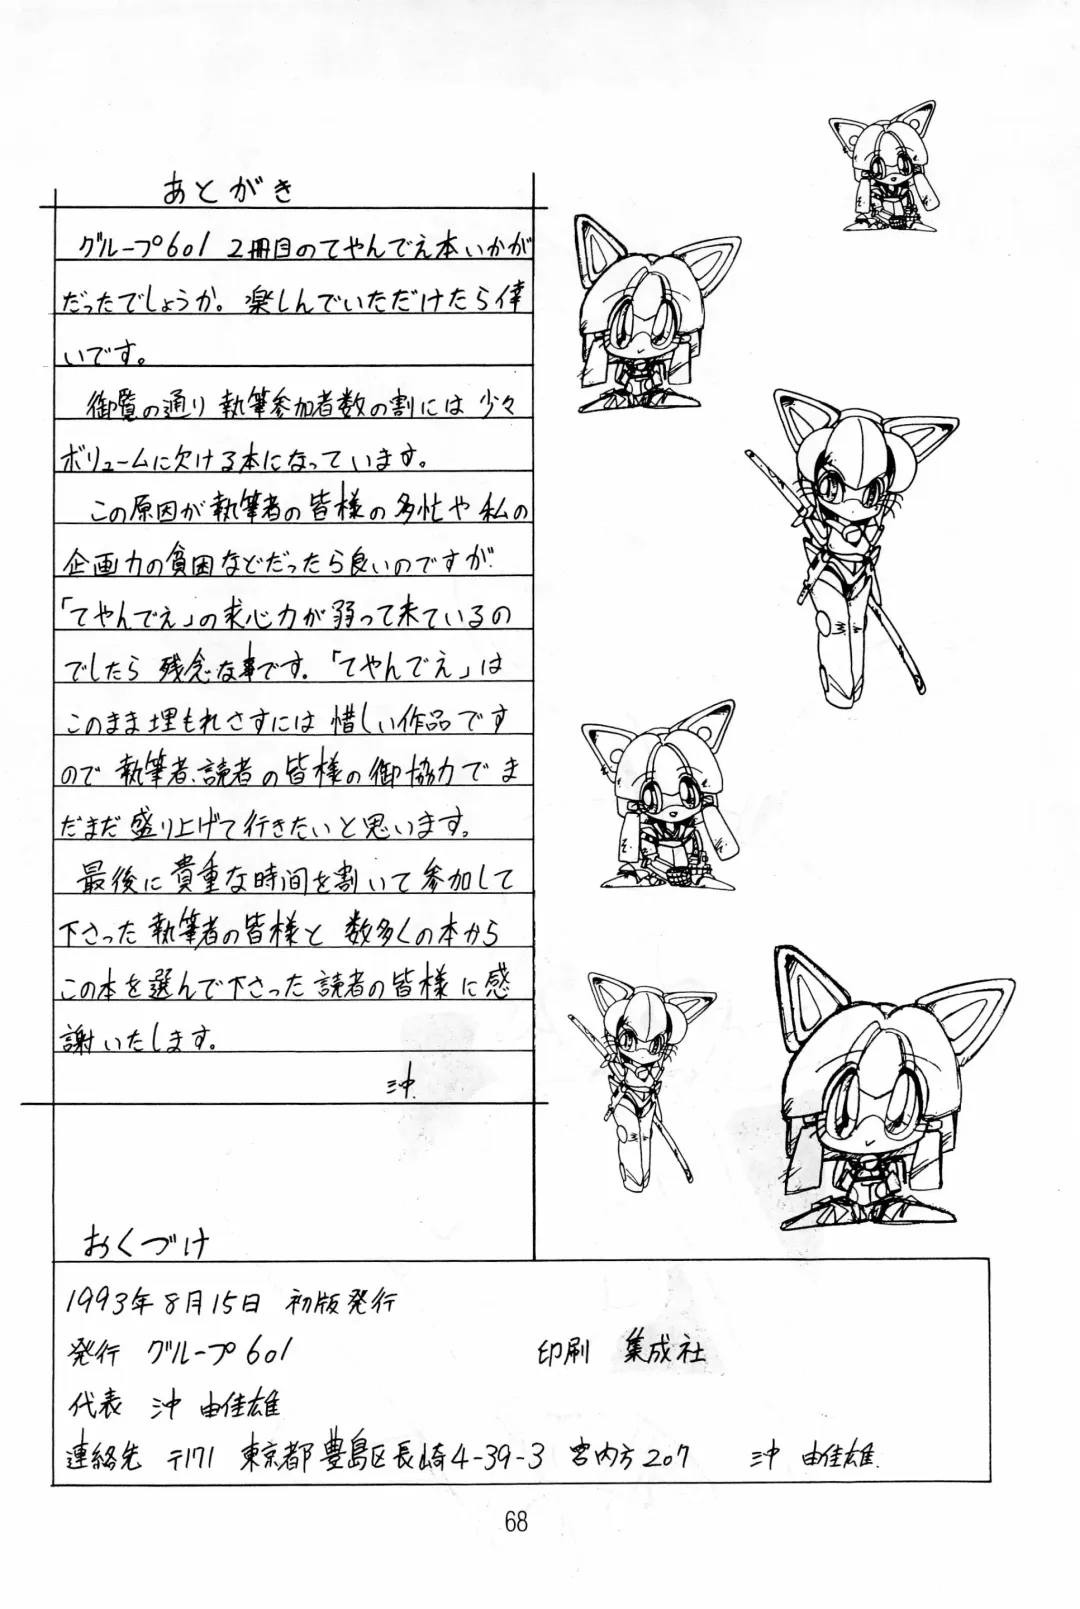 あとがき
グループ601 2冊目のてやんでえ本いかが
だったでしょうか。楽しんでいただけたら倖
いです。
御覧の通り 執筆参加者数の割には 少々
ボリュームに欠ける本になっています。
この原因が執筆者の皆様の多忙や 私の
企画力の貧困などだったら良いのですが
「てやんでえ」の求心力が弱って来ているの
でしたら 残念な事です。「てやんでえ」は
このまま埋もれさすには 惜しい作品です
ので 執筆者、読者の皆様の御協力でま
だまだ盛り上げて行きたいと思います。
最後に貴重な時間を割いて参加して
下さった執筆者の皆様と 数多くの本から
この本を選んで下さった読者の皆様に感
謝いたします。
沖
おくづけ
1993年8月15日 初版発行
発行 グループ601 印刷 集成社
代表 沖 由佳雄
連絡先 〒171 東京都豊島区長崎4-39-3 宮内方207 沖 由佳雄
68